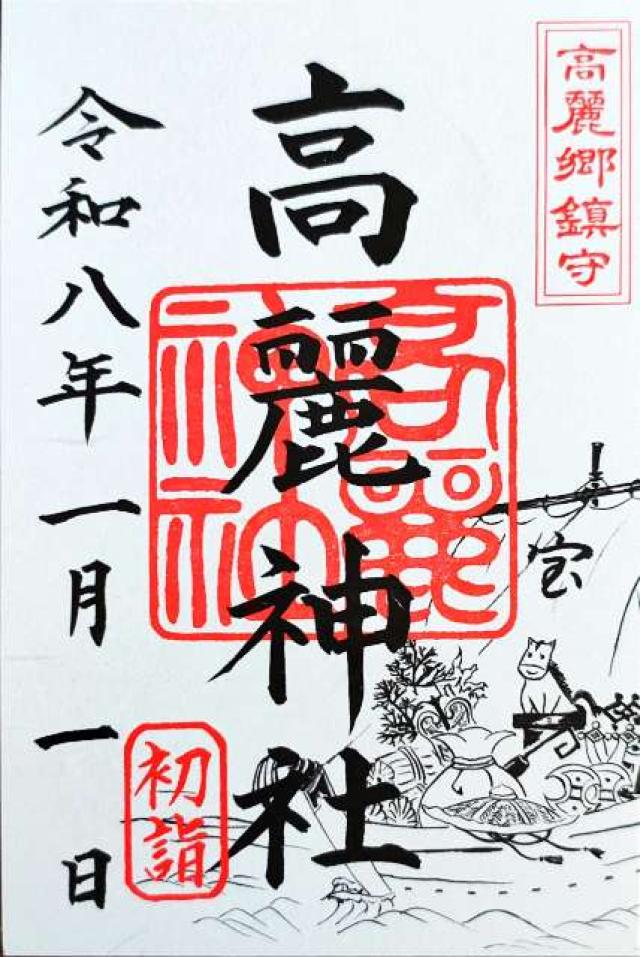 高麗郷鎮守
高麗神社
令和八年一月一日
初詣
宝
高麗神社